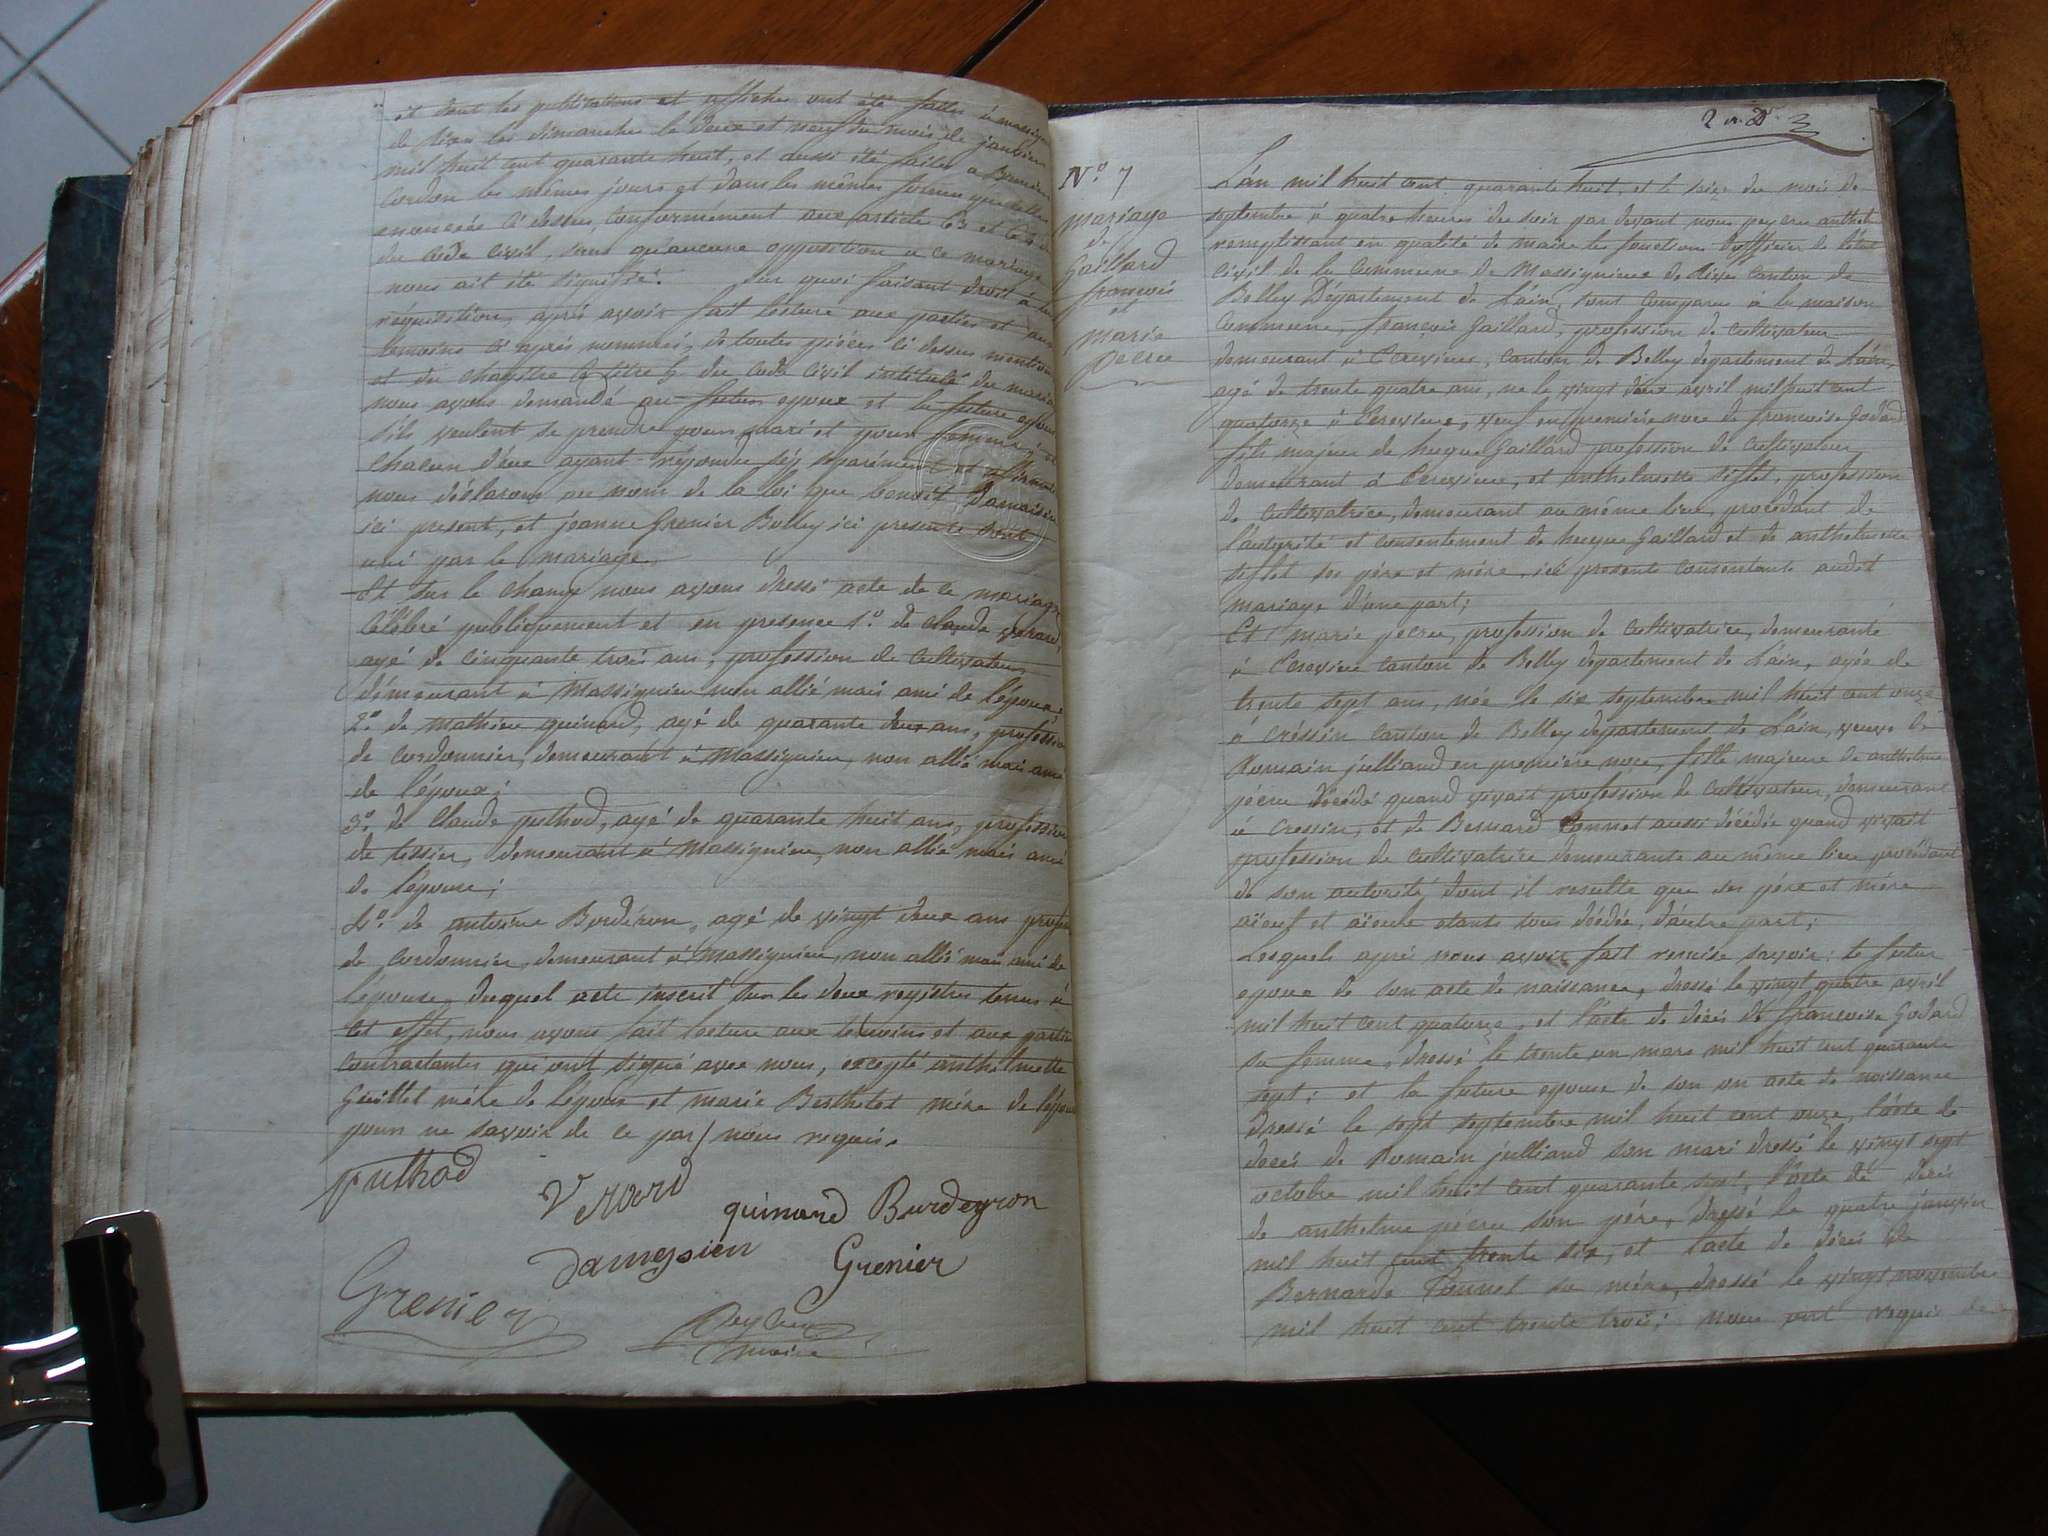 et dont les publications et affiches ont été faites à massignieu
de rives les dimanches le deux et neuf du mois de janvier
mil huit cent quarante huit, et aussi été faites a
cordon les mêmes jours et dans les mêmes formes que celles
enoncées ci dessus, conformément aux article 63 et 64
du code civil, sans qu'aucune opposition a ce mariage
nous ait été signifié. Sur quoi faisant droit à leur
réquisition, après avoir fait lecture aux parties et aux
temoins ci après nommés, de toutes pièces ci dessus mention
et du chapitre 6 titre 5 du code civil intitulé du mariage
nous avons demandé au futur epoux et la future epouse
s'ils veulent se prendre pour mari et pour femme
chacun d'eux ayant répondu séparément et affirmati
nous déclarons au nom de la loi que benoit
ici present, et jeanne Grenier Bolley ici presente sont
uni par le mariage.
Et sur le champ nous avons dressé acte de ce mariage
Célébré publiquement et en presence 1º. de claude verard,
agé de cinquante trois ans, profession de cultivateur
démeurant à Massignieu non allié mais ami de l'épouse;
2º. de mathieu quinard, agé de quarante deux ans, profession
de cordonnier, demeurant à Massignieu, non allié mais ami
de l'époux;
3º. de Claude puthod, agé de quarante huit ans, profession
de tessier, demeurant à Massignieu, non allié mais ami
de l'épouse;
4º. de antoine Burderon, agé de vingt deux ans profess
de cordonnier, demeurant à Massignieu, non allié mais ami de
l'épouse, duquel acte inscrit sur les deux registres tenus à
cet effet, nous avons fait lecture aux témoins et aux parties
contractantes qui ont signé avec nous, excepté anthelmette
Guillet mère de l'époux et marie Berthelet mère de l'épouse
pour ne savoir de ce par nous requis.
puthod
Verard
quinard Burdeyron
dameysien Grenier
Grenier
Peycru
maire
Nº 7
Mariage
de
Gaillard
françois
et
Marie
pecru
L'án mil huit cent quarante huit, et le seize du mois de
septembre à quatre heures du soir par devant nous peycru anthel
remplissant en qualité de maire les fonctions d'officier de l'état
civil de la commune de Massignieux de Rives canton de
Belley Département de L'áin, sont comparus à la maison
commune, françois Gaillard, profession de cultivateur
demeurant à Cerexieu, canton de Belley departement de L'áin,
agé de trente quatre ans, né le vingt deux avril mil huit cent
quatorze à Cerexieu, veuf en première noce de francoise Godard
fils majeur de hugue Gaillard profession de cultivateur
demeurant à Cerexieu, et anthelmette siflet, profession
de cultivatrice, demeurant au même lieu, procédant de
l'autorité et consentement de hugue Gaillard et de anthelmette
siflet ses père et mère, ici presents consentants audit
mariage d'une part;
Et marie pecru, profession de cultivatrice, demeurante
à Cerexieu canton de Belley departement de L'áin, agée de
trente sept ans, née le six septembre mil huit cent onze
à créssin canton de Belley departement de L'áin, veuve de
Romain julliand en première noce, fille majeure de anthelme
pécru décédé quand vivait profession de cultivateur, demeurant
à Cressin, et de Bernard Connet aussi décédée quand vivait
profession de cultivatrice demeurante au même lieu procédant
de son autorité dont il resulte que ses père et mère
aïeul et aïeule etants tous décédés, d'áutre part;
Lesquels après nous avoir fait remise savoir: le futur
epoux de son acte de naissance, dressé le vingt quatre avril
mil huit cent quatorze, et l'acte de décès de francoise Godard
sa femme, dressé le trente un mars mil huit cent quarante
sept; et la future epouse de son un acte de naissance
dressé le sept septembre mil huit cent onze, l'acte de
decés de Romain julliand son mari dressé le vingt sept
octobre mil huit cent quarante sept, l'acte de decés
de anthelme pécru son père, dressé le quatre janvier
mil huit cent trente six, et l'acte de décés de
Bernarde Connet sa mère, dressé le vingt novembre
mil huit cent trente trois; nous ont requis de